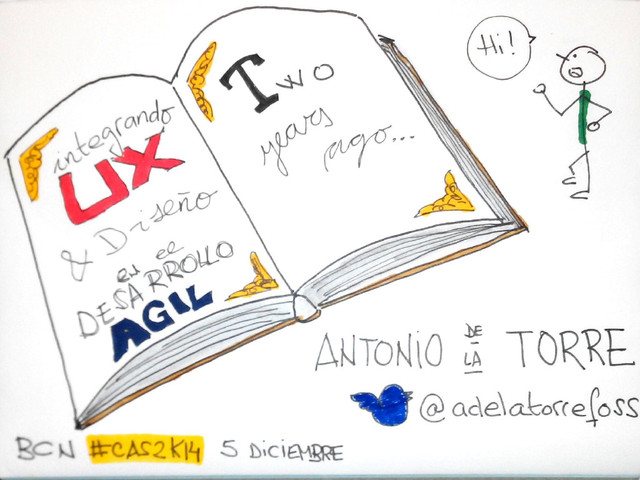 integrando
UX
& Diseño
en el
DESARROLLO
AGIL
Two
years
ago...
Hi!
ANTONIO DE LA TORRE
@adelatorrefoss
BCN #CAS2K14 5 DICIEMBRE